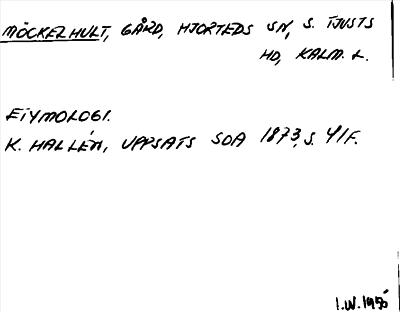 MÖCKELHULT, GÅRD, HJORTEDS SN, S. TJUSTS
HD, KALM. L.
ETYMOLOGI.
K. HALLÉN, UPPSATS SOA 1873, S. 41F.
I.W. 1950